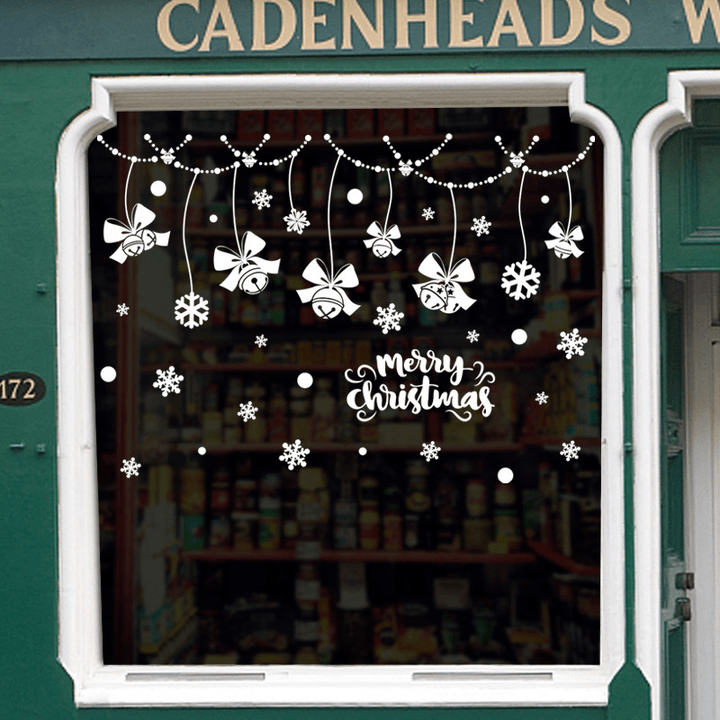 CADENHEADS W
172
Merry
Christmas